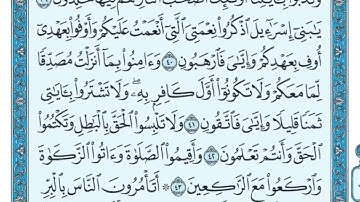 يَٰبَنِىٓ إِسْرَٰٓءِيلَ ٱذْكُرُوا۟ نِعْمَتِىَ ٱلَّتِىٓ أَنْعَمْتُ عَلَيْكُمْ وَأَوْفُوا۟ بِعَهْدِىٓ
أُوفِ بِعَهْدِكُمْ وَإِيَّٰىَ فَٱرْهَبُونِ ٤٠ وَءَامِنُوا۟ بِمَآ أَنزَلْتُ مُصَدِّقًا
لِّمَا مَعَكُمْ وَلَا تَكُونُوٓا۟ أَوَّلَ كَافِرٍۭ بِهِۦ ۖ وَلَا تَشْتَرُوا۟ بِـَٔايَٰتِى
ثَمَنًا قَلِيلًا وَإِيَّٰىَ فَٱتَّقُونِ ٤١ وَلَا تَلْبِسُوا۟ ٱلْحَقَّ بِٱلْبَٰطِلِ وَتَكْتُمُوا۟
ٱلْحَقَّ وَأَنتُمْ تَعْلَمُونَ ٤٢ وَأَقِيمُوا۟ ٱلصَّلَوٰةَ وَءَاتُوا۟ ٱلزَّكَوٰةَ
وَٱرْكَعُوا۟ مَعَ ٱلرَّٰكِعِينَ ٤٣ ۞ أَتَأْمُرُونَ ٱلنَّاسَ بِٱلْبِرِّ